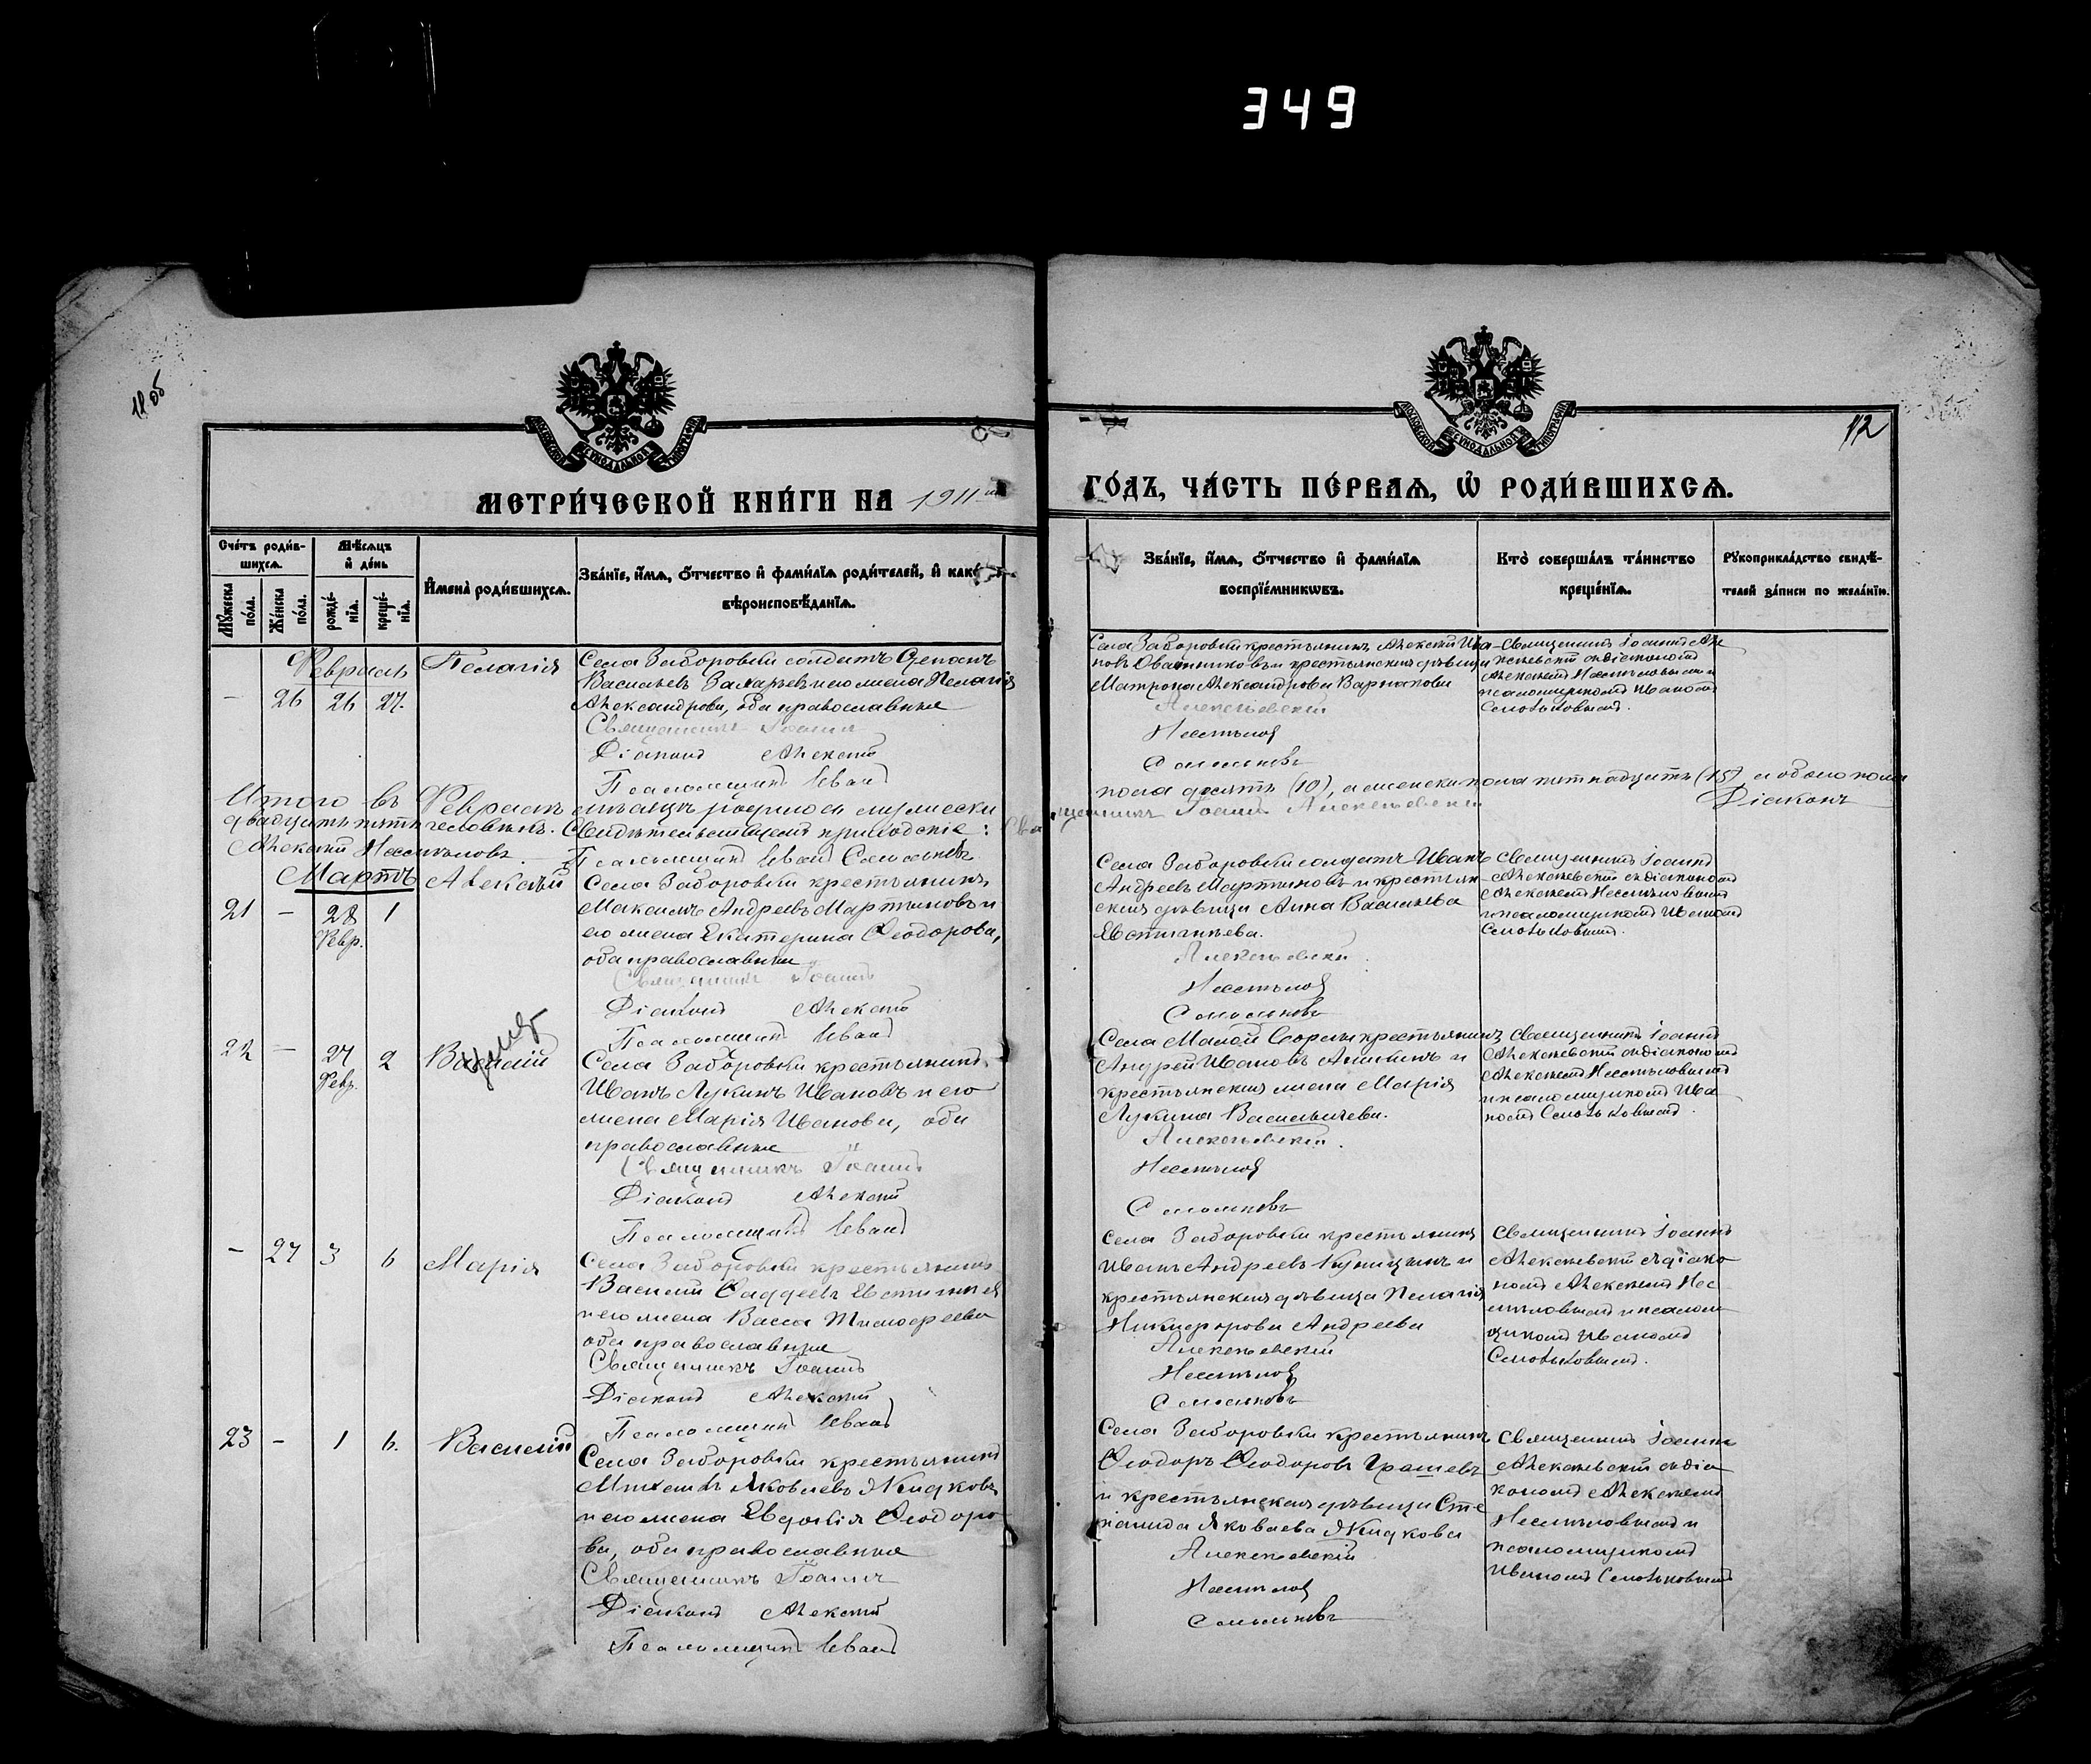 349
11 об
12
МОСКОВСКОЙ СѴНОДАЛЬНОЙ ТИПОГРАФІИ
МОСКОВСКОЙ СѴНОДАЛЬНОЙ ТИПОГРАФІИ
МЕТРИ́ЧЕСКОЙ КНИ́ГИ НА 1911
ГО́ДЪ, ЧА́СТЬ ПЕ́РВАѦ, Ѡ҆ РОДИ́ВШИХСѦ.
Сче́тъ роди́в-
шихсѧ.
Мꙋ́жеска по́ла.
Же́нска по́ла.
Мѣ́сѧцъ
и҆ де́нь
рожде́-
нїѧ.
креще́-
нїѧ.
И҆мена̀ роди́вшихсѧ.
Зва́нїе, и҆́мѧ, ѻ҆́тчество и҆ фами́лїѧ роди́телей, и҆ како́
вѣроисповѣ́данїѧ.
Зва́нїе, и҆́мѧ, ѻ҆́тчество и҆ фами́лїѧ
воспрїе́мникѡвъ.
Кто̀ соверша́лъ та́инство
креще́нїѧ.
Рꙋкоприкла́дство свидѣ́-
телей за́писи по жела́нїю.
Февраль
- 26 26 27.
Пелагія
Села Заборовки солдатъ Степанъ
Васильевъ Захарьевъ и его жена Пелагія
Александрова, оба православные
Священникъ Іоаннъ
Діаконъ Алексій
Псаломщикъ Иванъ
Села Заборовки крестьянинъ Алексій Ива-
новъ Овчинниковъ и крестьянская дѣвица
Матрона Александрова Варнакова
Алексѣевскій
Несмѣловъ
Священникъ Іоаннъ Але
ксѣевскій съ діакономъ
Алексіемъ Несмѣловымъ и
псаломщикомъ Иваномъ
Итого въ Февралѣ мѣсяцѣ родилося мужеска
пола десять (10), а женска пола пятнадцать (15), а обоего пола
двадцать пять человѣкъ. Свидѣтельствуемъ приходскіе: Священникъ Іоаннъ Алексѣевскій
Діаконъ
Алексій Несмѣловъ.
Псаломщикъ Иванъ
Мартъ
21 - 28 1
Февр.
Алексѣй
Села Заборовки крестьянинъ
Максимъ Андреевъ Мартыновъ и
его жена Екатерина Ѳеодорова,
оба православные
Священникъ Іоаннъ
Діаконъ Алексій
Псаломщикъ Иванъ
Села Заборовки солдатъ Иванъ
Андреевъ Мартыновъ и крестьян-
ская дѣвица Анна Васильева
Евстигнѣева.
Алексѣевскій
Несмѣловъ
Священникъ Іоаннъ
Алексѣевскій съ діакономъ
Алексіемъ Несмѣловымъ
и псаломщикомъ Иваномъ
22 - 27 2
Февр.
Василій
умеръ
Села Заборовки крестьянинъ
Иванъ Лукинъ Ивановъ и его
жена Марія Иванова, оба
православные
Священникъ Іоаннъ
Діаконъ Алексій
Псаломщикъ Иванъ
Андрей Ивановъ Аникинъ и
крестьянская жена Марія
Лукина Васильичева.
Алексѣевскій.
Несмѣловъ
Священникъ Іоаннъ
Алексѣевскій съ діакономъ
Алексіемъ Несмѣловымъ
и псаломщикомъ Ива
- 27 3 6
Марія
Села Заборовки крестьянинъ
Василій Ѳаддеевъ Евстигнѣевъ
и его жена Васса Тимоѳеева
оба православные
Священникъ Іоаннъ
Діаконъ Алексій
Псаломщикъ Иванъ
Села Заборовки крестьянинъ
Иванъ Андреевъ Куницынъ и
крестьянская дѣвица Пелагія
Никифорова Андреева
Алексѣевскій
Несмѣловъ
Священникъ Іоаннъ
Алексѣевскій съ діако
номъ Алексіемъ Нес
мѣловымъ и псалом
щикомъ Иваномъ
23 - 1 6.
Василій
Села Заборовки крестьянинъ
Михаилъ Яковлевъ Жидковъ
и его жена Евдокія Ѳеодоро
ва, оба православные
Священникъ Іоаннъ
Діаконъ Алексій
Псаломщикъ Иванъ
Села Заборовки крестьянинъ
Ѳеодоръ Ѳеодоровъ Грашевъ
и крестьянская дѣвица Сте
панида Яковлева Жидкова
Алексѣевскій
Несмѣловъ
Священникъ Іоаннъ
Алексѣевскій съ діа
кономъ Алексіемъ
Несмѣловымъ и
псаломщикомъ
Иваномъ